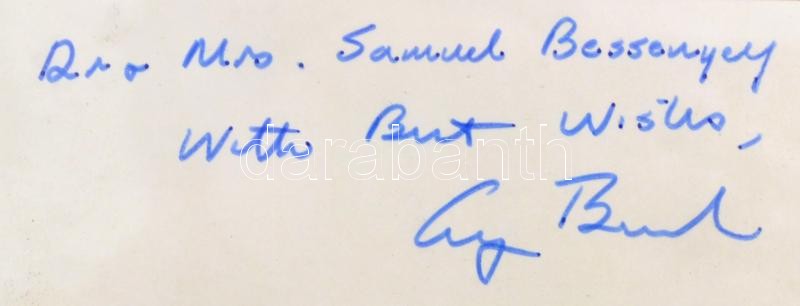 Dr & Mrs. Samuel Bessenyey
With Best Wishes,
darabanth
Gg Bush